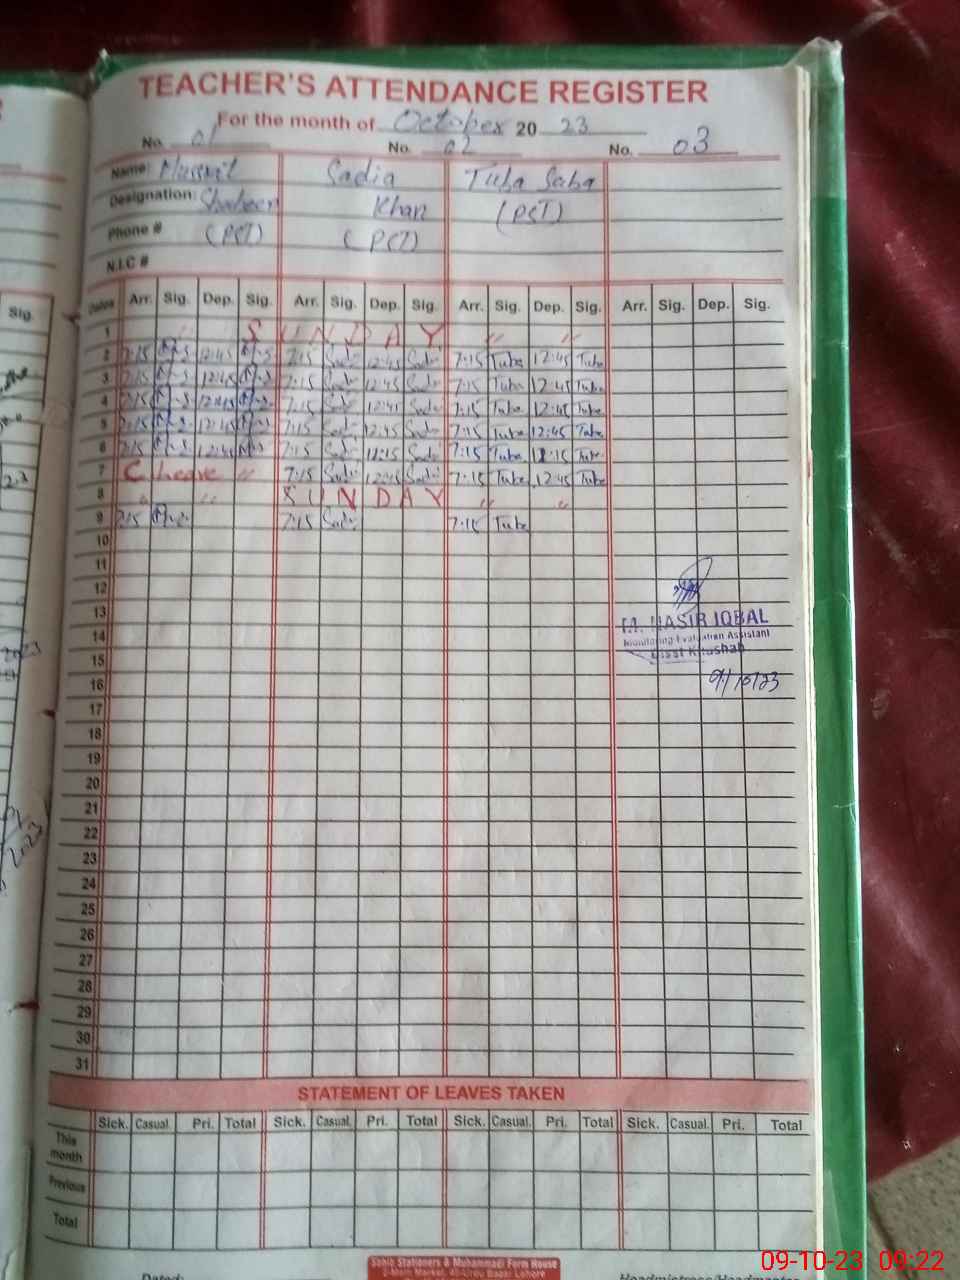 TEACHER'S ATTENDANCE REGISTER
For the month of October 20 23
No. 01 No. 02 No. 03
Name: Sadia Tuba Saba
Designation: Shabeer Khan (PST)
Phone # (PST) (PST)
N.I.C #
Dates Arr. Sig. Dep. Sig. Arr. Sig. Dep. Sig. Arr. Sig. Dep. Sig. Arr. Sig. Dep. Sig.
1 " S U N D A Y " "
2 7:15 12:45 7:15 Sadi 12:45 Sadi 7:15 Tuba 12:45 Tuba
3 7:15 12:45 7:15 Sadi 12:45 Sadi 7:15 Tuba 12:45 Tuba
4 7:15 12:45 7:15 Sadi 12:45 Sadi 7:15 Tuba 12:45 Tuba
5 7:15 12:45 7:15 Sadi 12:45 Sadi 7:15 Tuba 12:45 Tuba
6 7:15 7:15 Sadi Sadi 7:15 Tuba Tuba
7 C. Leave " 7:15 Sadi 12:45 Sadi 7:15 Tuba 12:45 Tuba
8 " " S U N D A Y " "
9 7:15 7:15 Sadi 7:15 Tuba
10
11
12
13
M. NASIR IQBAL
14
Monitoring Evaluation Assistant
Khushab
15
16
9/10/23
17
18
19
20
21
22
23
24
25
26
27
28
29
30
31
STATEMENT OF LEAVES TAKEN
Sick. Casual. Pri. Total Sick. Casual. Pri. Total Sick. Casual. Pri. Total Sick. Casual. Pri. Total
This month
Previous
Total
Sahib Stationers & Muhammadi Form House
Dated: Headmistress/Headmaster
Sig.
09-10-23 09:22